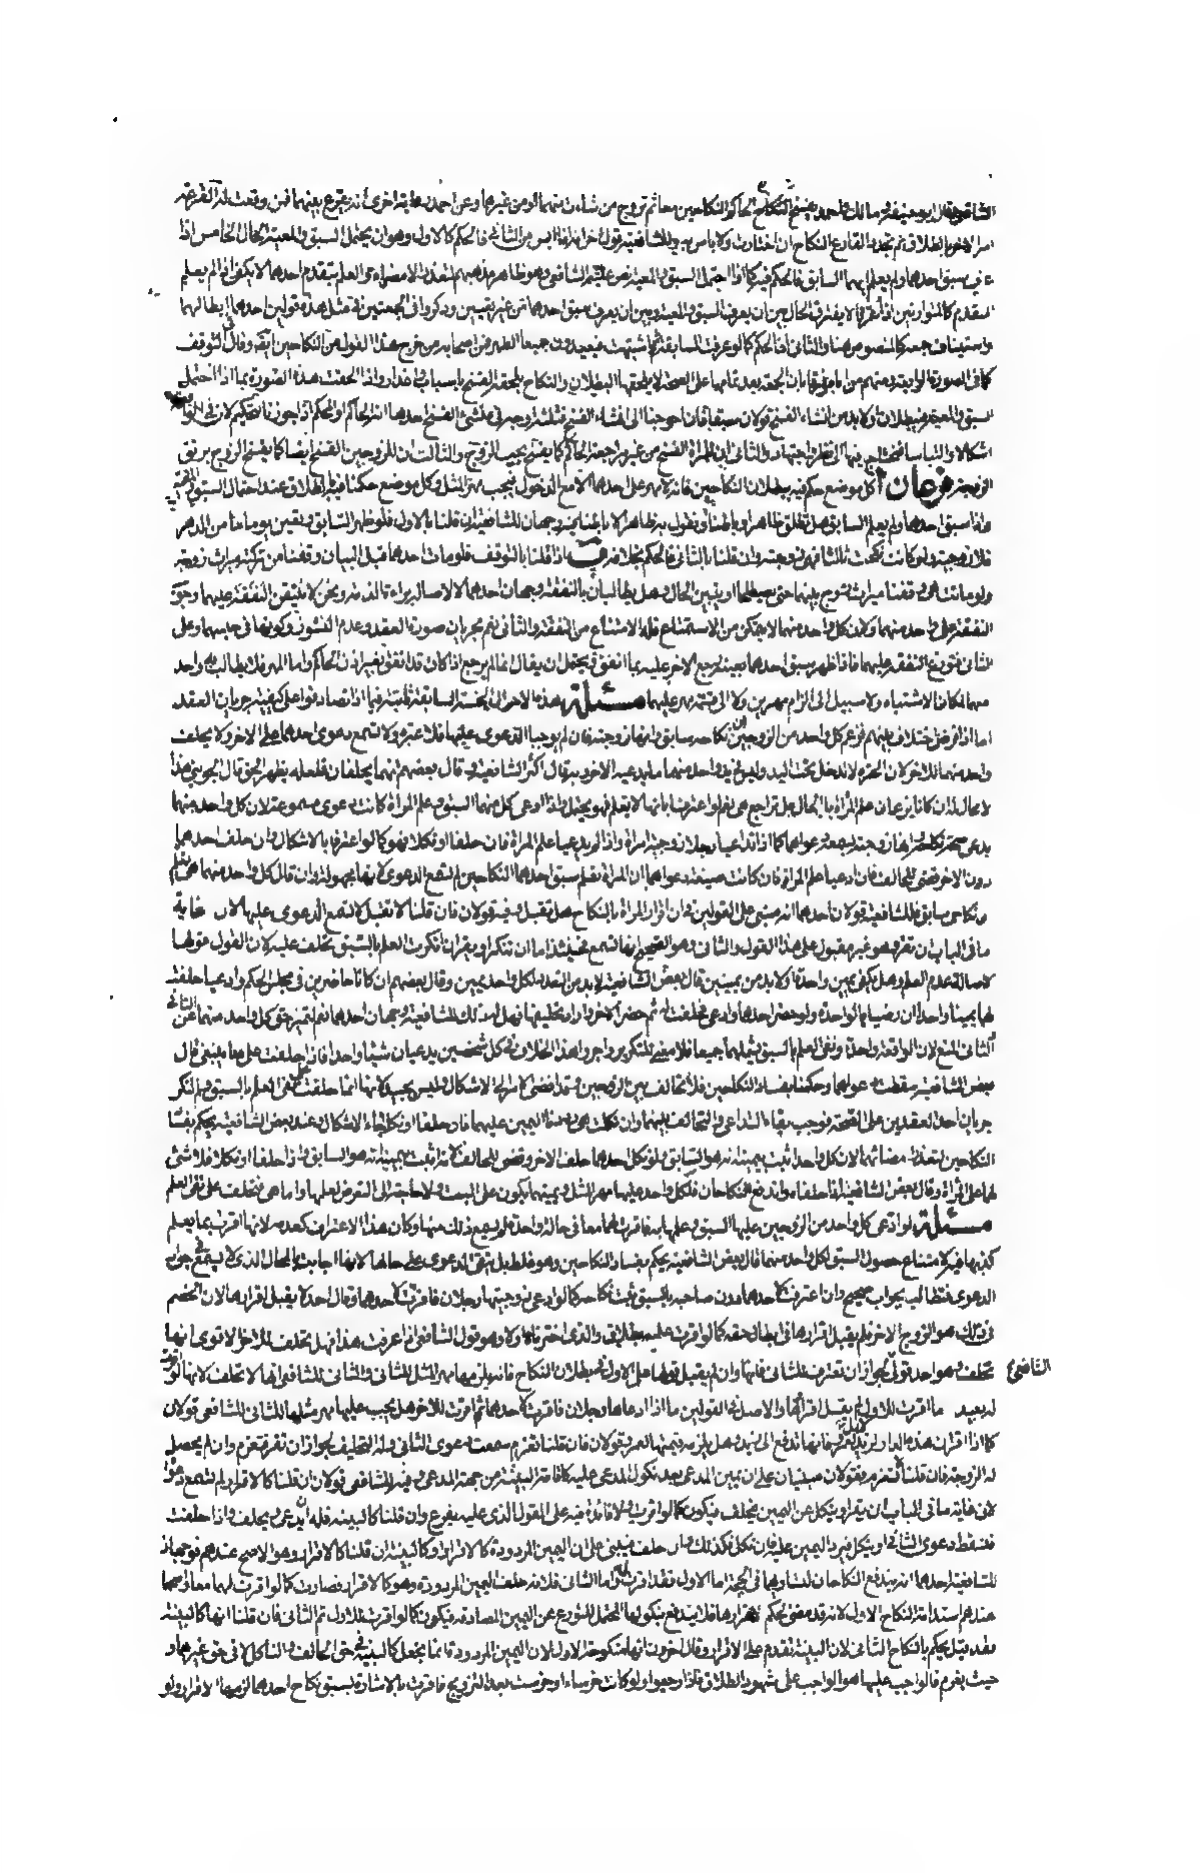 الشافعي وقال ابو حنيفة ومالك واحمد يفسخ النكاح الحاكم النكاحين معا ثم تزوج من شاءت منهما او من غيرهما وعن احمد رواية اخرى انه يقرع بينهما فمن وقعت له القرعة
امر الاخر بالطلاق ثم يجدد القارع النكاح ان اختارت ولا باس به وللشافعية قول اخر الثاني فالحكم كالاول وهو ان يحتمل السبق والمعية الحال الخامس اذا
عرف سبق احدهما ولم يعلم ايهما السابق فالحكم فيه كما اذا احتمل السبق والمعية نص عليه الشافعي وهو ظاهر مذهبهم لتعذر الامضاء والعلم بتقدم احدهما لا يكفي اذا لم يعلم
المتقدم كالمتوارثين اذا غرقا لا يفترق الحال بين ان يعرف السبق والمعية وبين ان يعرف سبق احدهما من غير تعيين وذكروا في الجمعتين في مثل هذه قولين احدهما ابطالهما
واستيناف جمعة كالمنصوص هنا والثاني ان الحكم كما لو عرفت السابقة ثم اشتبهت فيعيدون جميعا الظهر فمن اصحابه من خرج هذا القول من النكاحين ايضا وقال التوقف
كما في الصورة الرابعة ومنهم من فرق بان الجمعة بعد تمامها على الصحة لا يلحقها البطلان والنكاح يلحقه الفسخ باسباب واعذار واذا الحقت هذه الصورة بما اذا احتمل
السبق والمعية فيبطلان ولا بد من انشاء الفسخ قولان سبقا فان احوجنا الى انشاء الفسخ فثلثة اوجه في منشئ الفسخ احدها انه الحاكم او المحكم اذا جوزنا تحكيم لان في الواقعة
اشكالا والتباسا فيحتاج فيها الى نظر واجتهاد والثاني ان للمراة الفسخ من غير مراجعة الحاكم كما يفسخ بعيب الزوج والثالث ان للزوجين الفسخ ايضا كما يفسخ الزوج برتق
الزوجة فرعان ا كل موضع حكم فيه ببطلان النكاحين فانه لا مهر على احدهما الا مع الدخول فيجب مهر المثل وكل موضع حكمنا فيه بالطلاق عند احتمال السبق والمعية
واذا سبق احدهما ولم يعلم السابق هل تطلق ظاهرا وباطنا او نقول به ظاهرا لا باطنا فيه وجهان للشافعية ان قلنا بالاول فلو ظهر السابق وتعين يوما ما من الدهر
فلا زوجية ولو كانت نكحت ثالثا فهي زوجته وان قلنا بالثاني فالحكم بخلافه ب اذا قلنا بالتوقف فلو مات احدهما قبل البيان وقفنا من تركته ميراث زوجة
ولو ماتت هي وقفنا ميراث زوج بينهما حتى يصطلحا او يتبين الحال وهل يطالبان بالنفقة وجهان احدهما لا لاصالة براءة الذمة ونحن لا نتيقن النفقة عليهما وحق
النفقة على واحد منهما ولان كل واحد منهما لا يتمكن من الاستمتاع فله الامتناع من النفقة والثاني نعم لجريان صورة العقد وعدم النشوز وكونها في حبسهما وعلى
الثاني توزع النفقة عليهما فاذا ظهر سبق احدهما بعينه رجع الاخر عليه بما انفق ويحتمل ان يقال انما يرجع اذا كان قد انفق بغير اذن الحاكم واما المهر فلا يطالب به واحد
منهما لمكان الاشتباه ولا سبيل الى الزام مهرين ولا الى قسمة مهر عليهما مسئلة هذه الاحوال الخمسة السابقة ثابتة فيما اذا تصادقوا على كيفية جريان العقد
اما اذا فرض اختلاف بينهم فزعم كل واحد من الزوجين ان نكاحه سابق وانها زوجته فان لم يوجبا الدعوى عليها فلا عبرة ولا تسمع دعوى احدهما على الاخر ولا يحلف
واحد منهما للاخر لان الحرة لا تدخل تحت اليد وليس في يد واحد منهما ما يدعيه الاخر وبه قال اكثر الشافعية وقال بعضهم انهما يحلفان فلعله يظهر الحق قال الجويني هذا
لا محالة ان كانا يزعمان علم المراة بالحال بل تراجع هي فلو اعترفا بانها لا تعلم فهو يحتمل واذا ادعى كل منهما السبق وعلم المراة كانت دعوى مسموعة لان كل واحد منهما
يدعى صحة نكاحه وانها زوجته فيسمع دعواهما كما اذا تداعيا رجلان زوجية امراة واذا لم يدعيا علم المراة فان حلفا او نكلا فهو كما لو اعترفا بالاشكال وان حلف احدهما
دون الاخر قضي للحالف فان ادعيا علم المراة فان كانت صيغة دعواهما ان المراة تعلم سبق احد النكاحين لم تسمع الدعوى لانها مجهولة وان قال كل واحد منهما هي تعلم
ان نكاحي سابق فللشافعية قولان احدهما انه مبني على القولين في ان اقرار المراة بالنكاح هل تقبل وفيه قولان فان قلنا لا تقبل لا تسمع الدعوى عليها لان غاية
ما في الباب ان تقر وهو غير مقبول على هذا القول والثاني وهو الصحيح انها تسمع فحينئذ اما ان تنكر او تقر ان انكرت العلم بالسبق تحلف عليه لان القول قولها
لاصالة عدم العلم وهل يكفي يمين واحدة او لا بد من يمينين قال بعض الشافعية لا بد من التعدد لكل واحد يمين وقال بعضهم ان كانا حاضرين في مجلس الحكم وادعيا حلفت
لهما يمينا واحدا ان رضيا بالواحدة ولو حضر احدهما وادعى فحلفت له ثم حضر الاخر واراد تحليفها فهل له ذلك للشافعية وجهان احدهما نعم لتميز حق كل واحد منهما عن
الثاني المنع لان الواقعة واحدة ونفي العلم بالسبق يشملهما جميعا فلا معنى للتكرير واجروا هذا الخلاف في كل شخصين يدعيان شيئا واحدا فاذا حلفت على ما ينبغي قال
بعض الشافعية سقطت دعواهما وحكمنا بفساد النكاحين فلا تحالف بين الزوجين وقد افضى الامر الى الاشكال وليس بجيد لانها انما حلفت على نفي العلم بالسبق ولم تنكر
جريان احد العقدين على الصحة فوجب بقاء التداعي والتحالف بينهما وان نكلت هي رددنا اليمين عليهما فان حلفا او نكلا جاء الاشكال وعند بعض الشافعية يحكم بفساد
النكاحين لتعذر امضائهما لان كل واحد اثبت بيمينه انه هو السابق ولو نكل احدهما حلف الاخر وقضي للحالف لانه اثبت بيمينه انه هو السابق واذا حلفا او نكلا فلا شيء
لهما على المراة وقال بعض الشافعية اذا حلفا واندفع النكاحان فلكل واحد عليها مهر المثل ويمينهما يكون على البت ولا حاجة الى التعرض لعلمها واما هي فتحلف على نفي العلم
مسئلة لو ادعى كل واحد من الزوجين عليها السبق وعلمها به فاقرت لهما معا في حالة واحدة لم يسمع ذلك منها وكان هذا الاعتراف كعدمه لانها اقرت بما يعلم
كذبها فيه لامتناع حصول السبق لكل واحد منهما قال بعض الشافعية يحكم بفساد النكاحين وهو غلط بل تبقى الدعوى على حالها لانها اجابت بالمحال الذي لا يسمع في جواب
الدعوى فتطالب بجواب صحيح وان اعترفت لاحدهما دون صاحبه بالسبق ثبت نكاحه كما لو ادعى زوجيتها رجلان فاقرت لاحدهما وقال احمد لا يقبل اقرارها لان الخصم
في ذلك هو الزوج الاخر فلم يقبل اقرارها في ابطال حقه كما لو اقرت عليه بطلاق والذي اخترناه اولا وهو قول الشافعي اذا عرفت هذا فهل تحلف للاخر الاقوى انها
تحلف وهو احد قولي الشافعي لجواز ان تعترف للثاني فانها وان لم يقبل قولها على الاول وبطلان النكاح فانه يلزمها مهر المثل للثاني والثاني للشافعي انها لا تحلف لانها لو اقرت
له بعد ما اقرت للاول لم يقبل اقرارها والاصل في القولين ما اذا ادعاها رجلان فاقرت لاحدهما ثم اقرت للاخر هل يجب عليها مهر مثلها للثاني للشافعي قولان
كما اذا اقر ان هذه الدار لزيد لا بل لعمرو فانها تدفع الى زيد وهل يلزمه قيمتها لعمرو قولان فان قلنا تغرم سمعت دعوى الثاني وله التحليف لجواز ان تقر فتغرم وان لم يحصل
له الزوجية فان قلنا لا تغرم فقولان مبنيان على ان يمين المدعي بعد نكول المدعى عليه كاقامة البينة من جهة المدعي وفيه للشافعي قولان ان قلنا كالاقرار لم تسمع دعواه
لان غاية ما في الباب ان يقر او ينكل عن اليمين فيحلف فيكون كما لو اقرت ولا فائدة فيه على القول الذي عليه يفرع وان قلنا كالبينة فله ان يدعي ويحلف واذا حلفت
فسقط دعوى الثاني او ينكل فيرد اليمين عليه فان نكل فكذلك وان حلف فيبنى على ان اليمين المردودة كالاقرار او كالبينة ان قلنا كالاقرار وهو الاصح عندهم فوجهان
للشافعية احدهما انه يندفع النكاحان لتساويهما في الحجة اما الاول فقد اقرت له واما الثاني فلانه حلف اليمين المردودة وهو كالاقرار فصارت كما لو اقرت لهما معا واصحهما
عندهم استدامة النكاح الاول لانه قد مضى الحكم باقرارها فلا يندفع بنكولها المحتمل للتورع عن اليمين الصادقة فيكون كما لو اقرت للاول ثم الثاني فان قلنا انها كالبينة
فقد قيل يحكم بالنكاح الثاني لان البينة تقدم على الاقرار وقال اخرون انها منكوحة الاول لان اليمين المردودة انما يجعل كالبينة في حق الحالف والناكل لا في حق غيرهما و
حيث يغرم فالواجب عليها هو الواجب على شهود الطلاق فاذا رجعوا ولو كانت خرساء او خرست بعد التزويج فاقرت بالاشارة بسبق نكاح احدهما لزمها الاقرار ولو